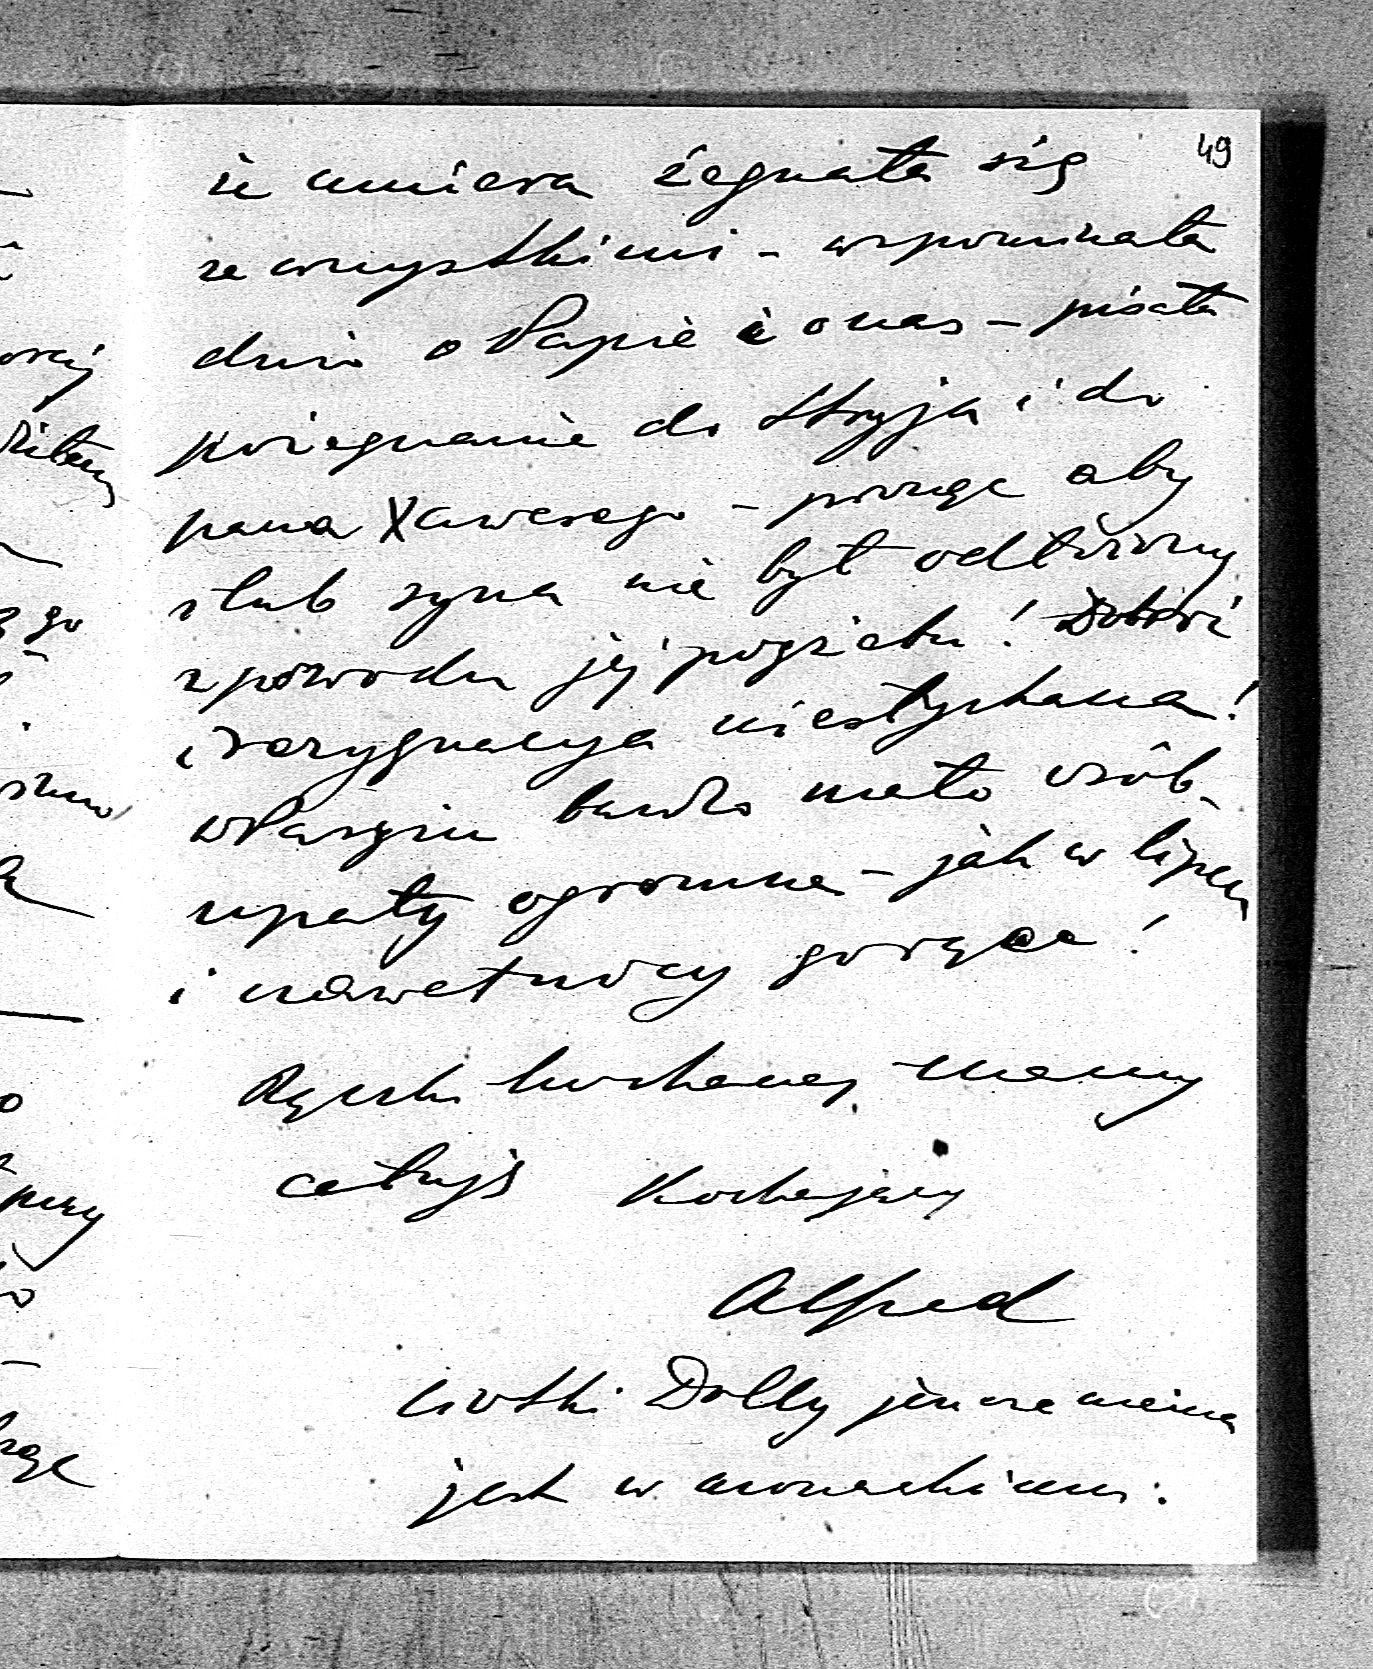 49
że umiera żegnała się
ze wszystkimi - wspominała
dużo o Papie i o nas - pisała
pożegnanie do Stryja i do
pana Xawerego - prosząc aby
ślub syna nie był odłożony
z powodu jej pogrzebu! Dobroć
i rezygnacya niesłychana!
w Paryżu bardzo mało osób -
upały ogromne - jak w lipcu
i nawet nocy gorące!
Rączki kochanej mamy
całuję Kochający
Alfred
Ciotki Dolly jeszcze niema
jest w monachium.